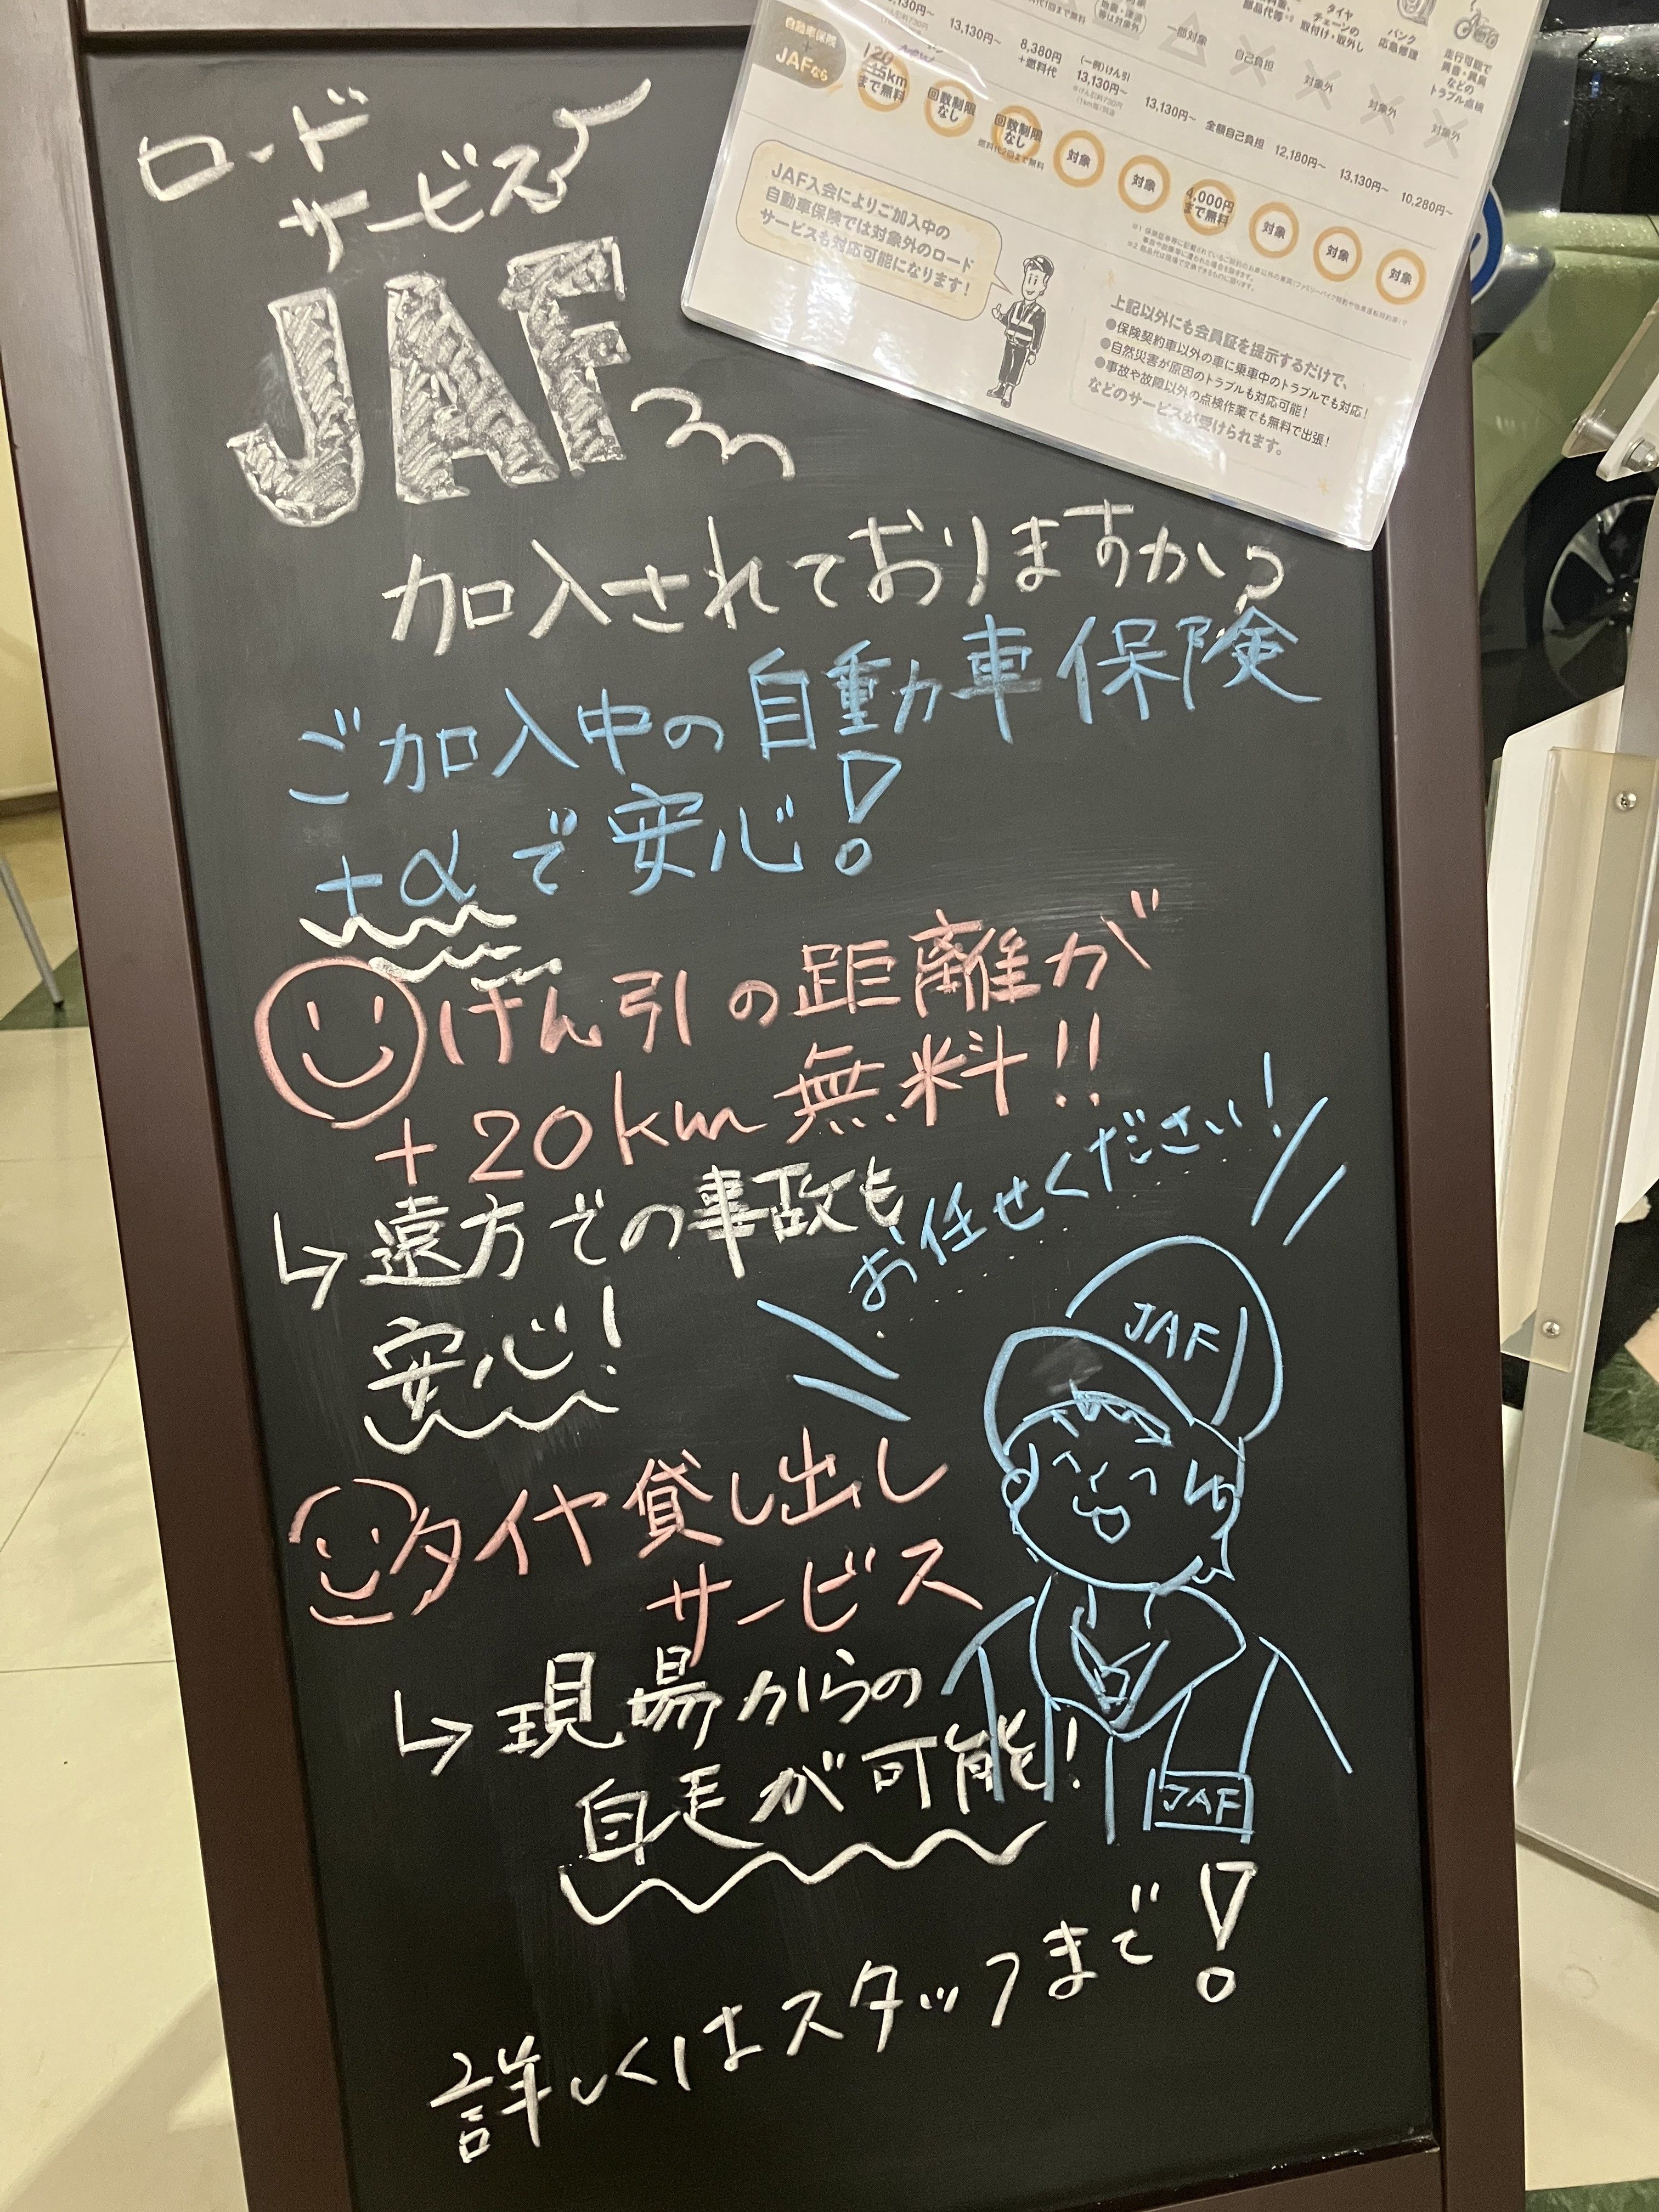 ロード
サービス
JAF
加入されておりますか?
ご加入中の自動車保険
+αで安心!
けん引の距離が
+20km無料!!
遠方での事故も
安心!
お任せください!
JAF
タイヤ貸し出し
サービス
現場からの
自走が可能!
JAF
詳しくはスタッフまで!
タイヤ
チェーンの
取付け・取外し
パンク
応急修理
走行可能で
異音・異臭
などの
トラブル点検
一部対象
自己負担
対象外
対象外
対象外
13,130円~
8,380円
+燃料代
(一例)けん引
13,130円~
13,130円~
全額自己負担
12,180円~
13,130円~
10,280円~
自動車保険
+
JAFなら
120
km
まで無料
回数制限
なし
回数制限
なし
燃料代2回まで無料
対象
対象
4,000円
まで無料
対象
対象
対象
JAF入会によりご加入中の
自動車保険では対象外のロード
サービスも対応可能になります!
上記以外にも会員証を提示するだけで、
●保険契約車以外の車に乗車中のトラブルでも対応!
●自然災害が原因のトラブルも対応可能!
●事故や故障以外の点検作業でも無料で出張!
などのサービスが受けられます。